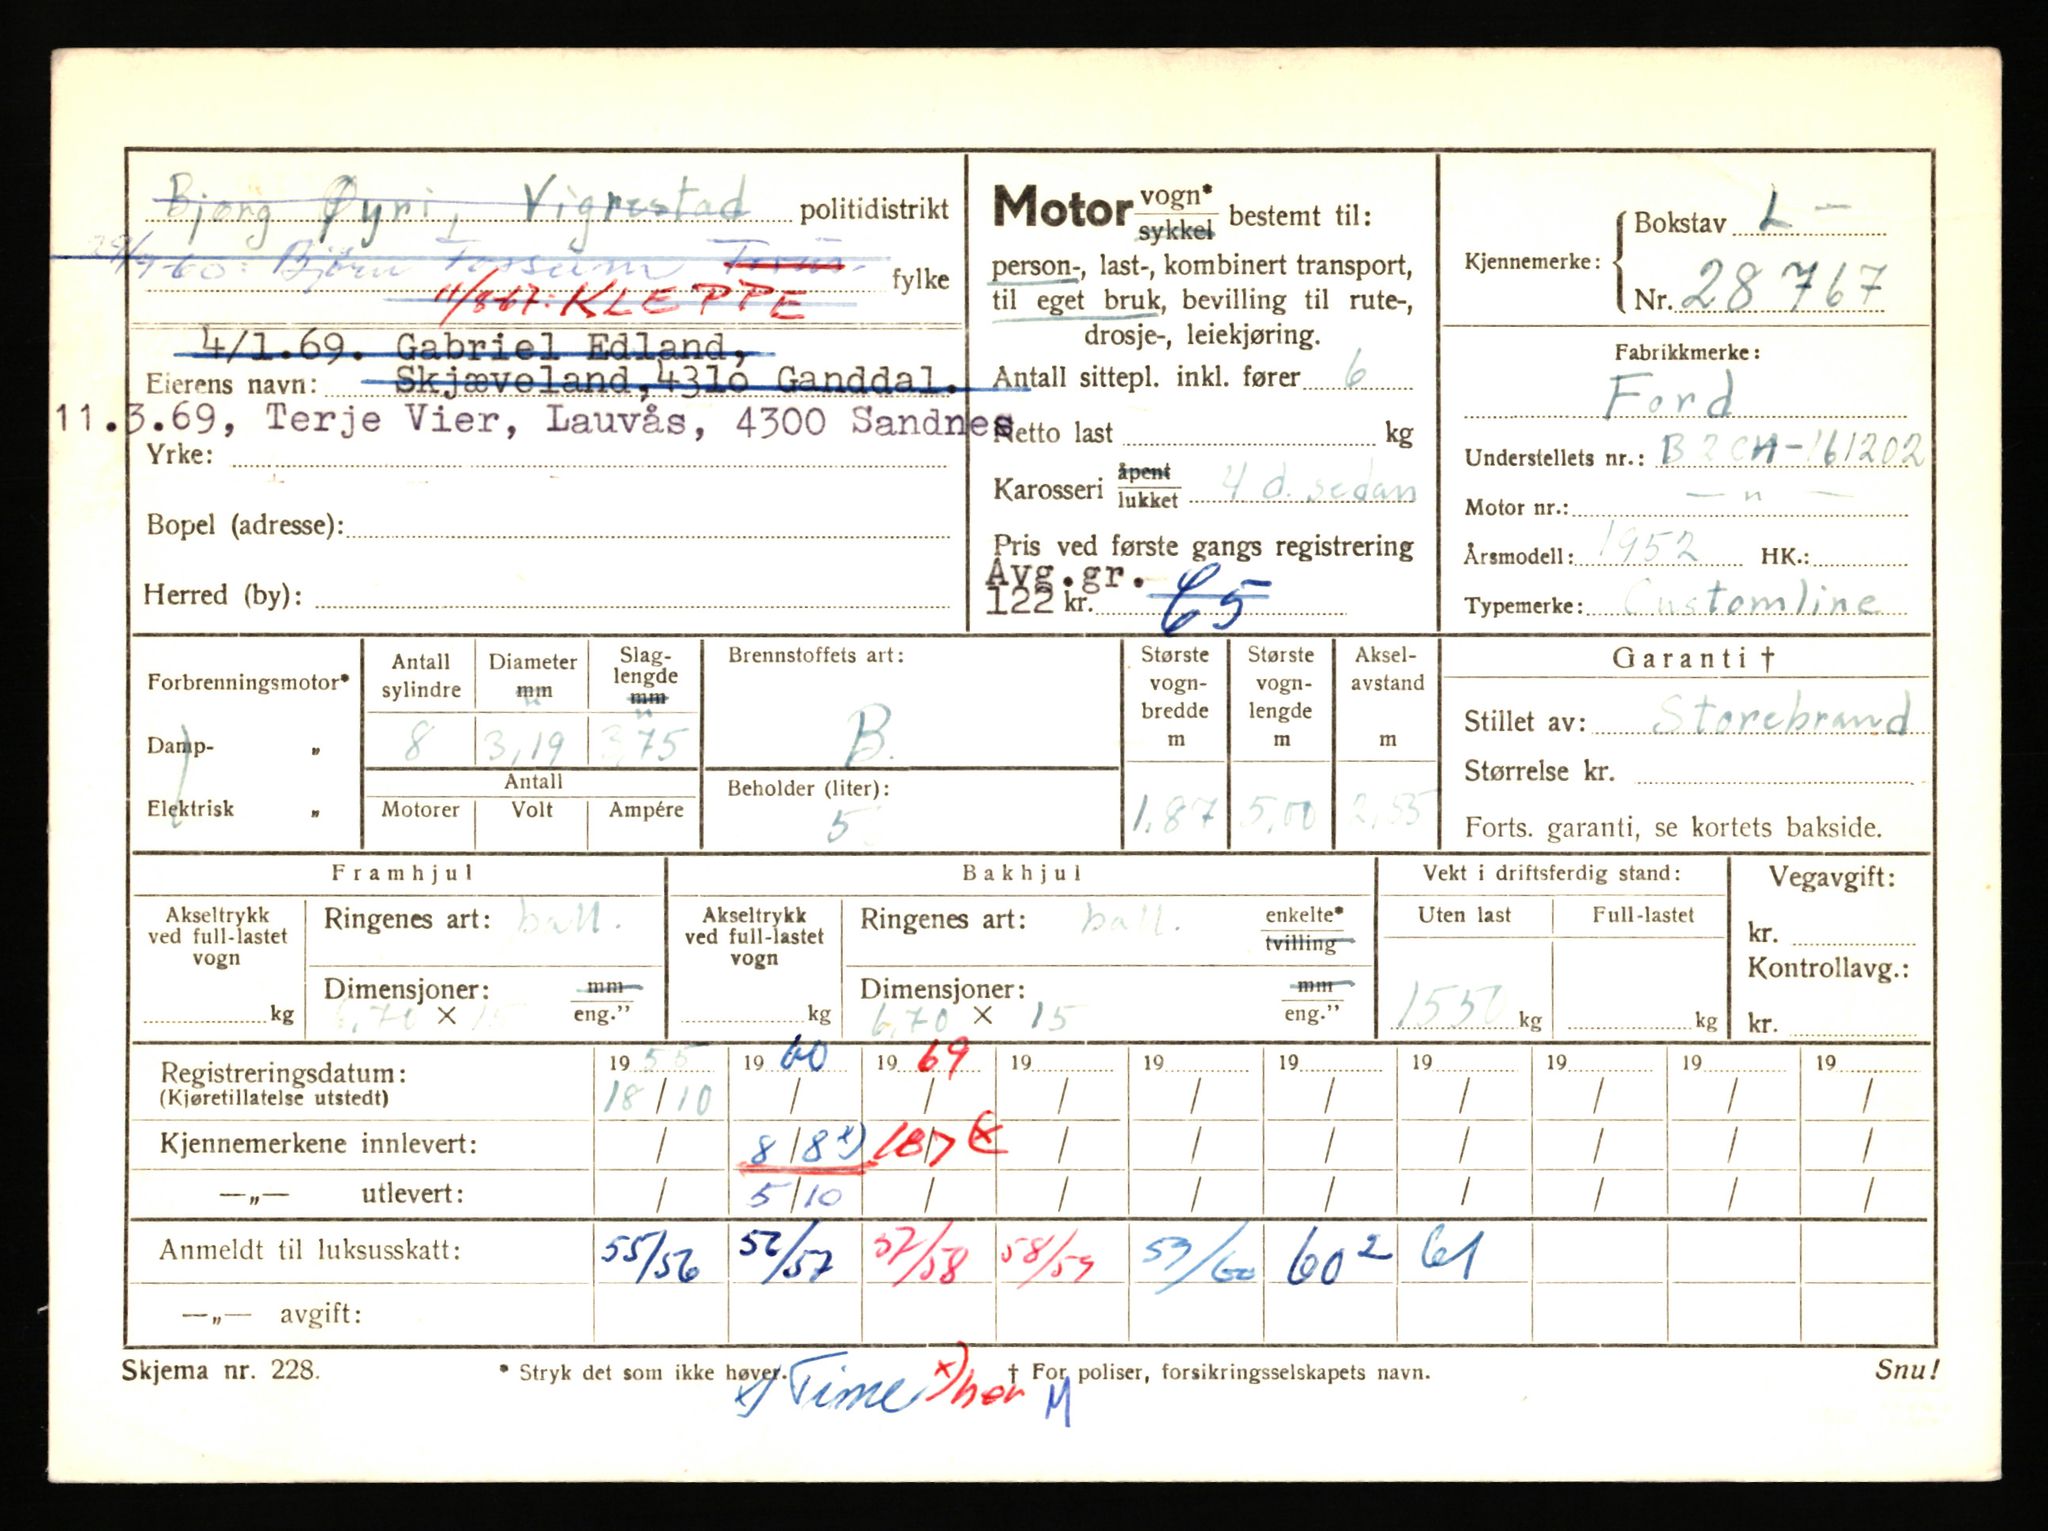 Bjørg Øyri, Vigrestad politidistrikt
29/9-60: Bjørn Fossum fylke
11/8-67: KLEPPE
4/1.69. Gabriel Edland,
Eierens navn: Skjæveland, 4310 Ganddal.
11.3.69, Terje Vier, Lauvås, 4300 Sandnes
Yrke:
Bopel (adresse):
Herred (by):
Motor vogn* sykkel bestemt til:
person-, last-, kombinert transport,
til eget bruk, bevilling til rute-,
drosje-, leiekjøring.
Antall sittepl. inkl. fører 6
Netto last kg
Karosseri åpent lukket 4 d. sedan
Pris ved første gangs registrering
Avg.gr.
122 kr. 65
Kjennemerke: Bokstav L-
Nr. 28767
Fabrikkmerke:
Ford
Understellets nr.: B2CH-161202
Motor nr.: — " —
Årsmodell: 1952 HK.:
Typemerke: Customline
Forbrenningsmotor*
Damp- „
Elektrisk „
Antall sylindre
Diameter mm "
Slaglengde mm "
8 3,19 3,75
Antall
Motorer Volt Ampére
Brennstoffets art:
B.
Beholder (liter):
5
Største vogn-bredde m
Største vogn-lengde m
Aksel-avstand m
1,87 5,00
Garanti †
Stillet av: Storebrand
Størrelse kr.
Forts. garanti, se kortets bakside.
Framhjul
Akseltrykk ved full-lastet vogn
kg
Ringenes art: ball.
Dimensjoner: mm
6,70 × 15 eng.”
Bakhjul
Akseltrykk ved full-lastet vogn
kg
Ringenes art: ball. enkelte* tvilling
Dimensjoner: mm
6,70 × 15 eng.”
Vekt i driftsferdig stand:
Uten last Full-lastet
1550 kg kg
Vegavgift:
kr.
Kontrollavg.:
kr.
Registreringsdatum: 1955 1960 1969 19 19 19 19 19 19 19
(Kjøretillatelse utstedt) 18/10 / / / / / / / / /
Kjennemerkene innlevert: / 8/8 x) 18/7 (x / / / / / / /
—„— utlevert: / 5/10 / / / / / / / /
Anmeldt til luksusskatt: 55/56 56/57 57/58 58/59 59/60 60² 61
—„— avgift:
Skjema nr. 228. * Stryk det som ikke høver. † For poliser, forsikringsselskapets navn. Snu!
x) Time x) her M